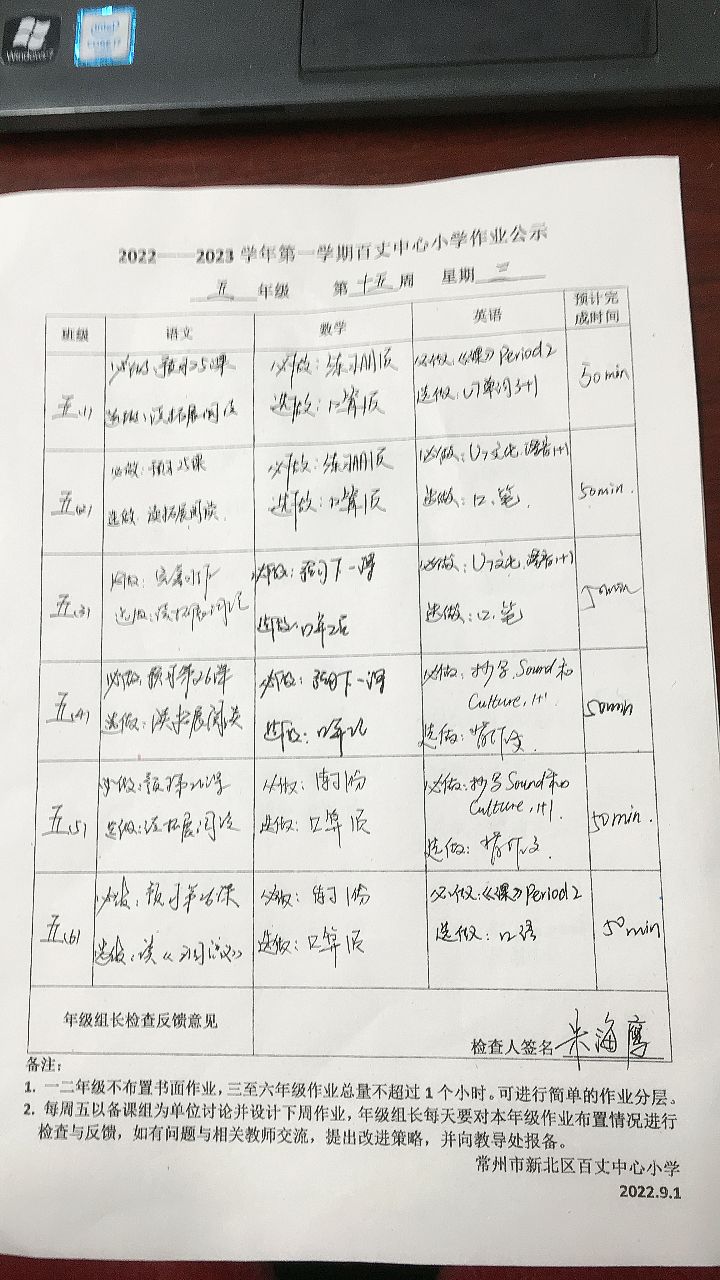 Windows 7
intel
2022——2023 学年第一学期百丈中心小学作业公示
五 年级 第 十五 周 星期 三
班级 语文 数学 英语 预计完成时间
五(1) 必做:预习25课 必做:练习册1页 必做:《课》Period 2 50min
选做:读拓展阅读 选做:口算1页 选做:U7单词3+1
五(2) 必做:预习25课 必做:练习册1页 必做:U7文化、语音1+1 50min.
选做:读拓展阅读 选做:口算1页 选做:口、笔
五(3) 必做: 必做:预习下一课 必做:U7文化、语音1+1 50min
选做:读拓展阅读 选做:口算2页 选做:口、笔
五(4) 必做:预习第26课 必做:预习下一课 必做:抄写Sound和 50min
Culture, 1+1
选做:读拓展阅读 选做:口算 选做:背作文
五(5) 必做:预习第26课 必做:补习1份 必做:抄写Sound和 50min.
Culture, 1+1
选做:读拓展阅读 选做:口算1页 选做:背作文
五(6) 必做:预习第26课 必做:补习1份 必做:《课》Period 2 50min
选做:读 选做:口算1页 选做:口语
年级组长检查反馈意见
检查人签名 朱海鹰
备注:
1. 一二年级不布置书面作业,三至六年级作业总量不超过 1 个小时。可进行简单的作业分层。
2. 每周五以备课组为单位讨论并设计下周作业,年级组长每天要对本年级作业布置情况进行
检查与反馈,如有问题与相关教师交流,提出改进策略,并向教导处报备。
常州市新北区百丈中心小学
2022.9.1